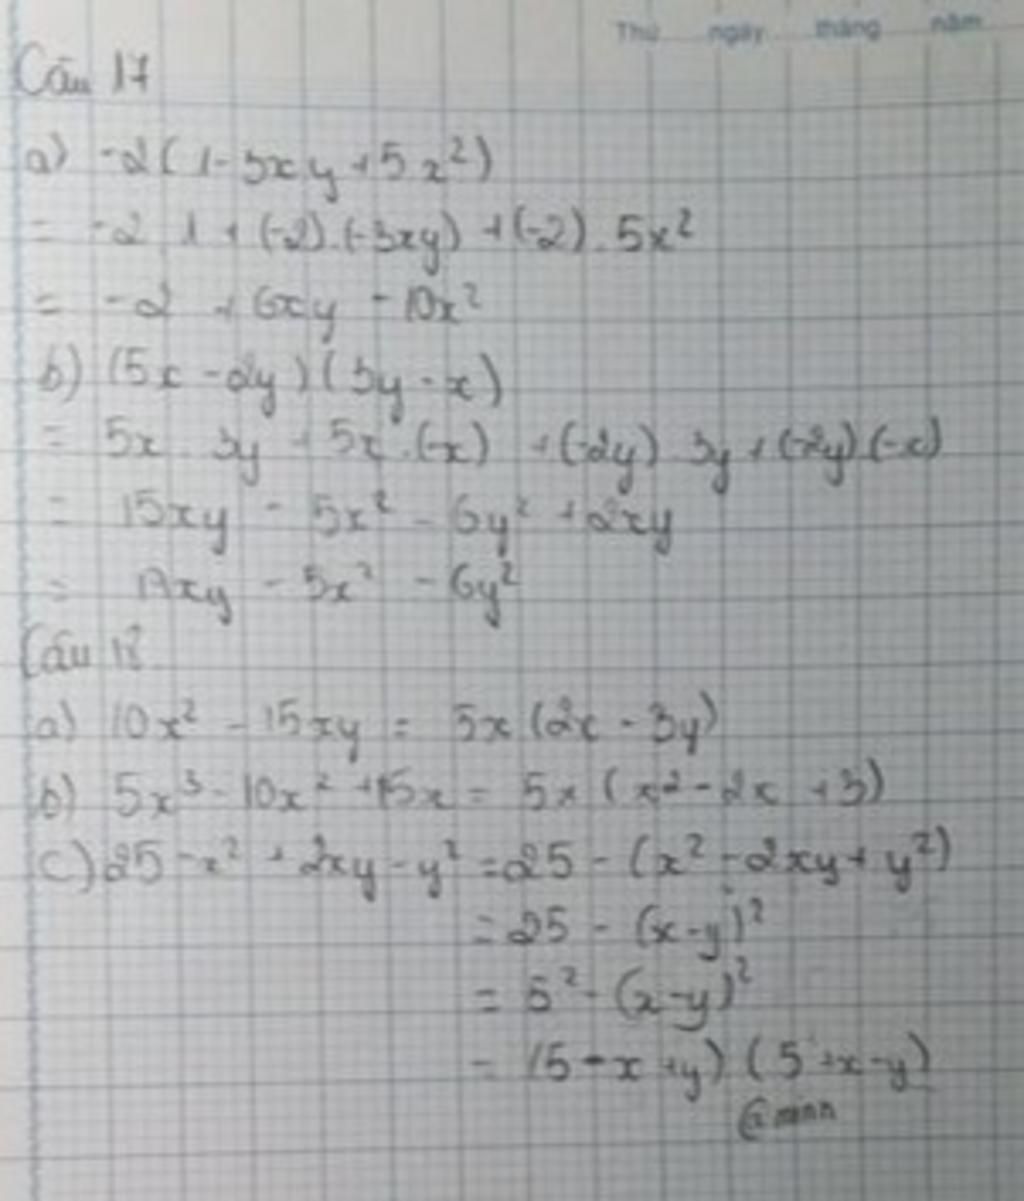 Thứ ngày tháng năm
Câu 17
a) -2(1-3xy+5x²)
= -2 . 1 + (-2).(-3xy) + (-2) . 5x²
= -2 + 6xy - 10x²
b) (5x - 2y)(3y - x)
= 5x . 3y + 5x . (-x) + (-2y) . 3y + (-2y)(-x)
= 15xy - 5x² - 6y² + 2xy
= 17xy - 5x² - 6y²
Câu 18
a) 10x² - 15xy = 5x(2x - 3y)
b) 5x³ - 10x² + 15x = 5x(x² - 2x + 3)
c) 25 - x² + 2xy - y² = 25 - (x² - 2xy + y²)
= 25 - (x-y)²
= 5² - (x-y)²
= (5 - x + y)(5 + x - y)